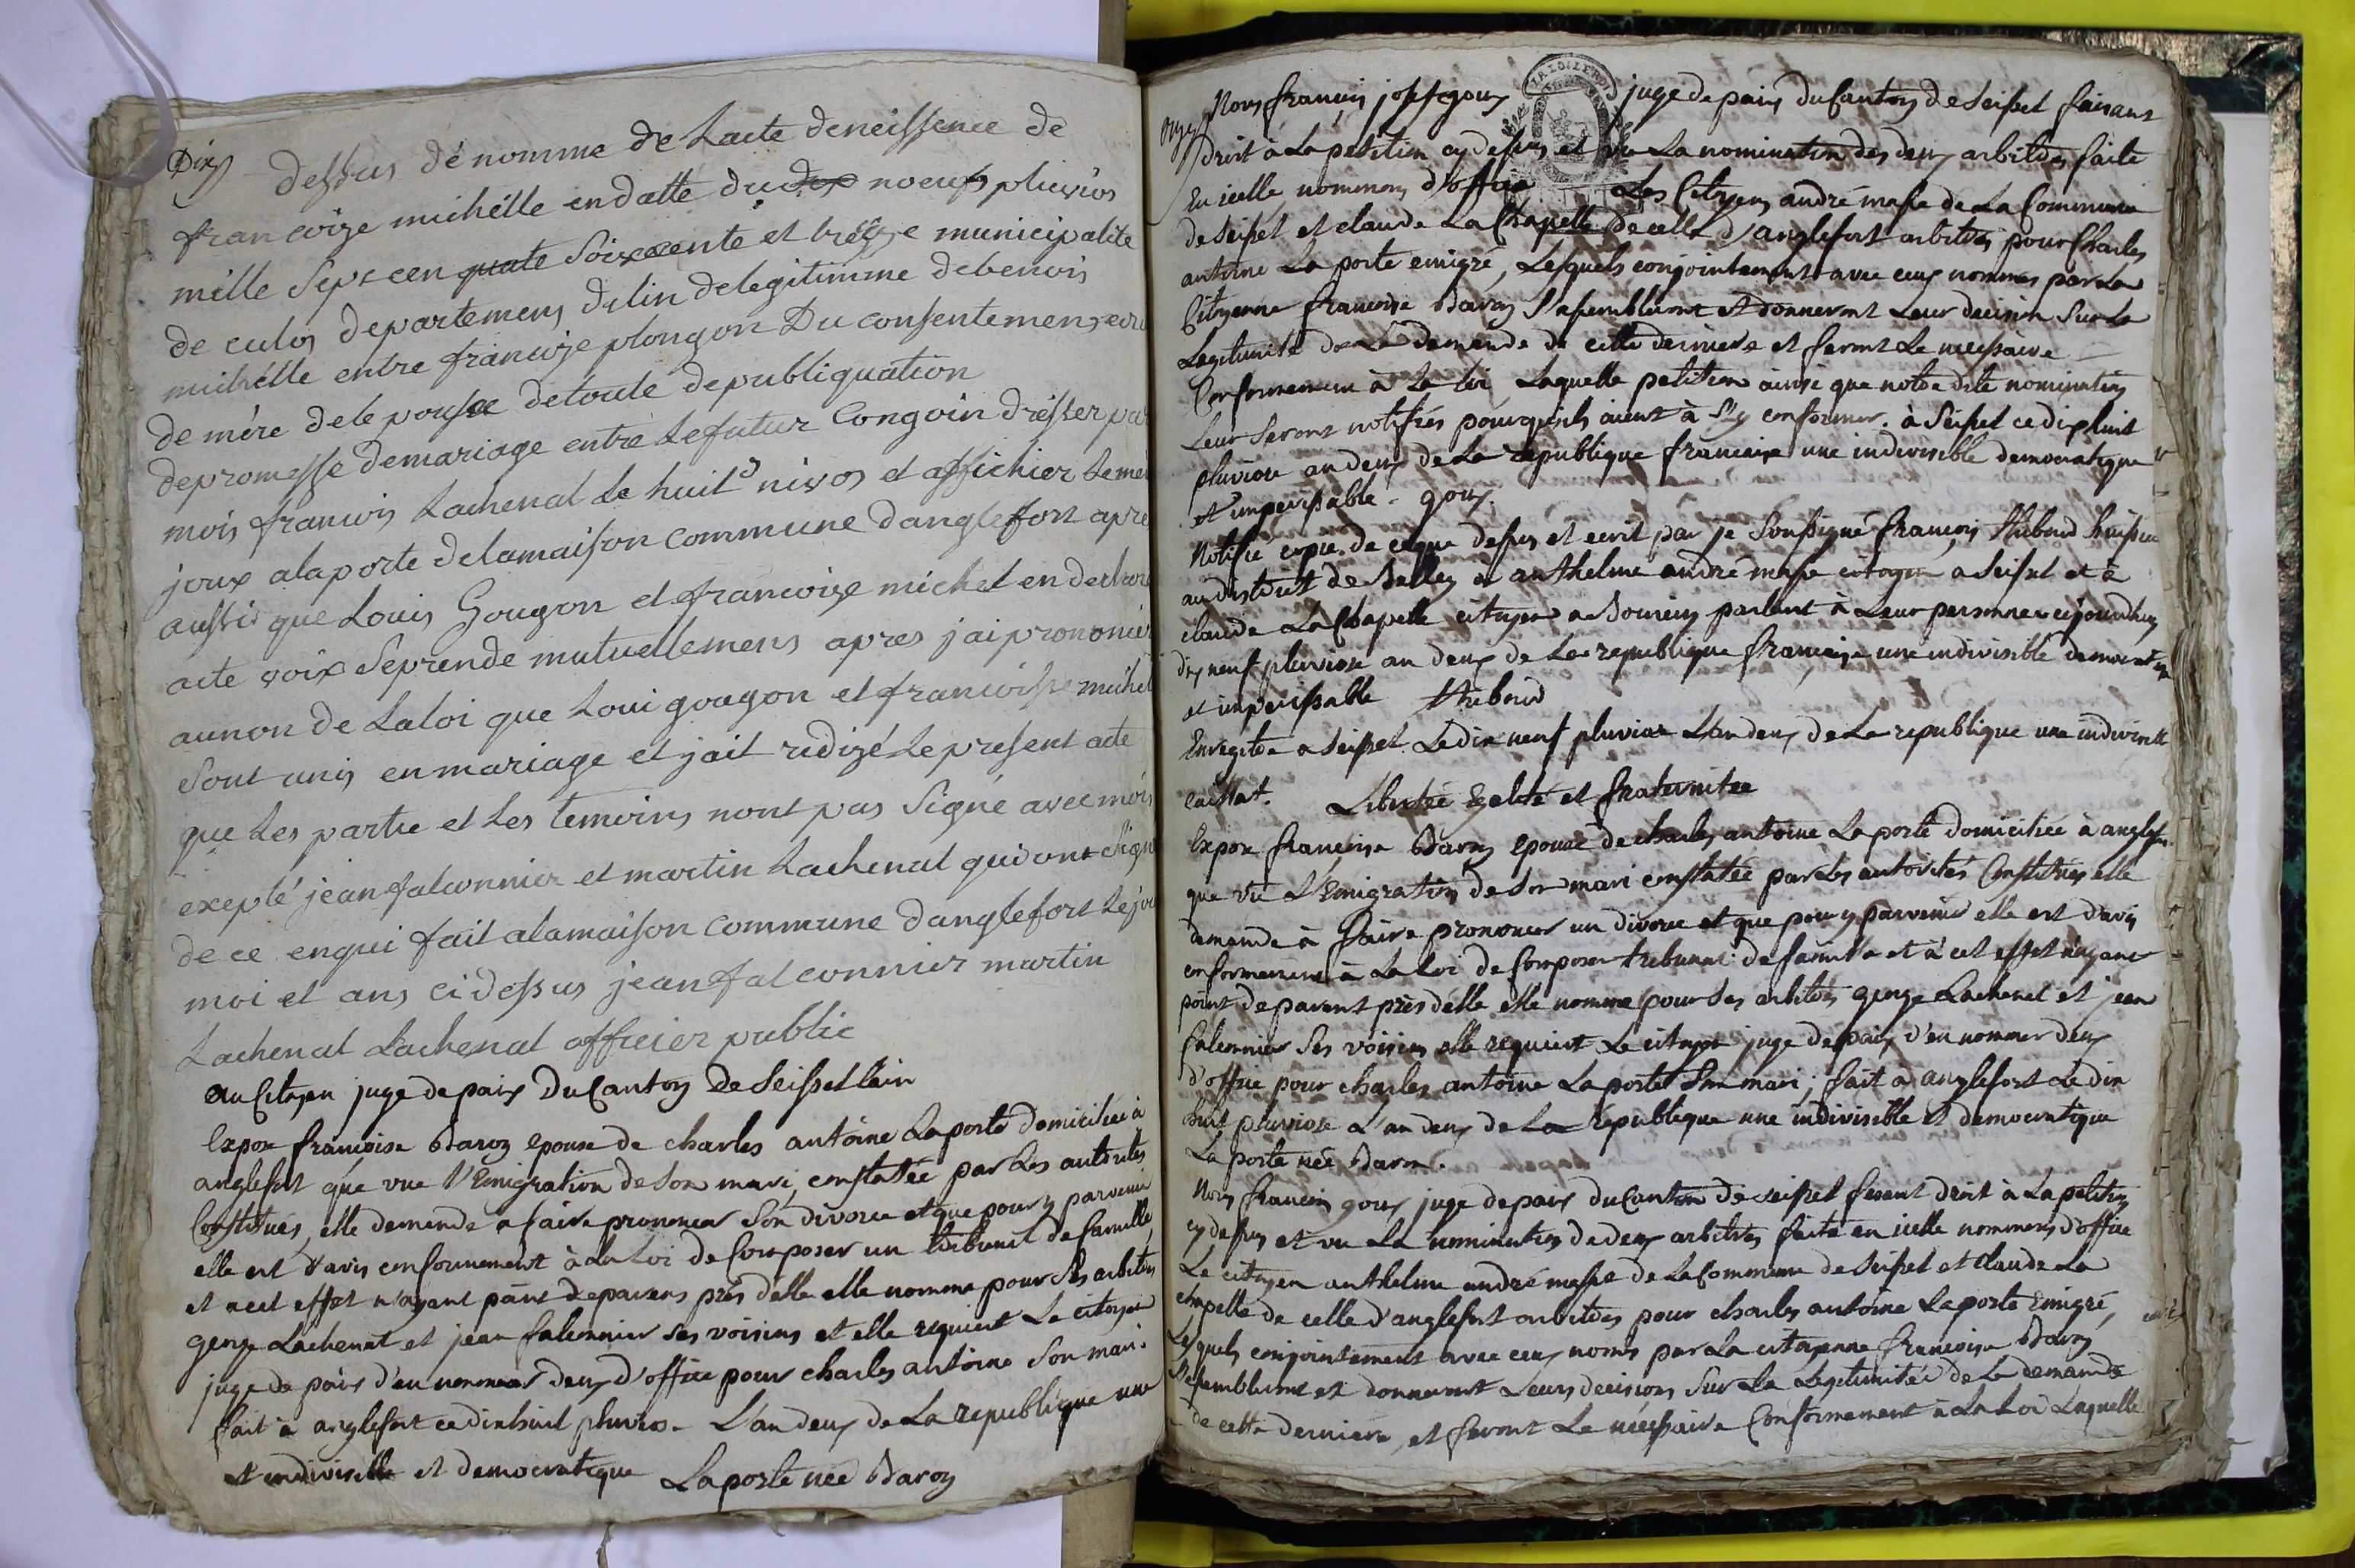 Dix
dessus dé nomme de Lacte deneissence de
francoize michélle en datte du dex noeufs pluviôs
mille sept cen quate soixcente et treize municipalite
de culos departemens delin delegitimme debenois
michélle entre francoize plongon Du consentemens
de mére dele pousce detoute depubliquation
depromesse demariage entre Lefutur Congoin drésser par
mois francois Lachenal Le huit nivos et affichier Leme
joux alaporte delamaison commune danglefort apre
aussi que Louis Gougon et francoize michel en
acte voix seprende mutuellemens apres jai prononcier
aunon de Laloi que Loui gougon et francoisse michel
sont unis en mariage et jait redizé Lepresent acte
que Les partie et Les temoins nont pas signé avec mois
exepté jean falconnier et martin Lachenal qui ont signe
de ce enqui fait alamaison commune danglefort Lejou
moi et ans ci dessus jean falconnier martin
Lachenal Lachenal officier public
au Citoyen juge de paix Du Canton De Seissel lain
Expose francoise Baron epouse de charles antoine Laporte domiciliée à
anglefort que vue l'Emigration de son mari, constatée par Les autorités
Constitués, elle demande a faire prononcer son divorce et que pour y parvenir
elle est d'avis conformement à La Loi de Composer un tribunal de famille
et a cet effet n'ayant point de parens près d'elle elle nomme pour ses arbitres
george Lachenal et jean falconnier ses voisins et elle requiert Le citoyen
juge de paix d'en nommer deux d'office pour charles antoine son mari.
fait à anglefort ce dixhuit pluviose L'an deux de La republique une
et indivisible et democratique Laporte née Baron
Onze
Nous francois josph goux juge de paix du Canton de Seissel faisant
droit à La petition cy dessus et vu La nomination des deux arbitres faite
En icelle, nommons d'office Les Citoyens andré masse de La Commune
de Seissel et claude La Chapelle de celle d'anglefort arbitres pour Charles
antoine La porte emigré, Lesquels conjointement avec ceux nommes par La
Citoyenne francoise Baron s'assembleront et donneront Leur decision sur La
Legitimité de La demande de cette derniere et feront Le necessaire
Conformement à La Loi, Laquelle petition ainsi que notre dite nomination
Leur seront notifiés pour qu'ils aient à s'y conformer. à Seissel ce dix huit
pluviose an deux de La republique francaise une indivisible democratique
et imperissable. goux.
Notifié copie de ce que dessus et ecrit par je soussigné francois thiboud huissier
au district de Belley a anthelme andré masse citoyen a Seissel et à
claude La Chapelle citoyen a parlant à Leur personnes cejourdhuy
dix neuf pluviose an deux de La republique francaise une indivisible democratique
et imperissable thiboud
Enregitré a Seissel Le dix neuf pluviose L'an deux de La republique une indivisible
caillat. Liberté Egalité et fraternitée
Expose francoise Baron epouse de charles antoine La porte domiciliée à anglefort
que vu L'Emigration de son mari constatée par Les autorités Constituées elle
demande à faire prononcer un divorce et que pour y parvenir elle est d'avis
conformement à La Loi de Composer tribunal de famille et à cet effet n'ayant
point de parent près d'elle elle nomme pour ses arbitres george Lachenal et jean
falconnier ses voisins elle requiert Le citoyen juge de paix d'en nommer deux
d'office pour charles antoine La porte son mari; fait a anglefort Le dix
huit pluviose L'an deux de La republique une indivisible et democratique
La porte née Baron.
Nous francois goux juge de paix du Canton de seissel fesent droit à La petition
cy dessus et vu La nomination de deux arbitres faite en icelle nommons d'office
Le citoyen anthelme andré masse de La Commune de Seissel et Claude La
chapelle de celle d'anglefort arbitres pour charles antoine Laporte Emigré,
Lesquels conjointement avec ceux només par La citoyenne francoise Baron
s'assembleront et donneront Leurs decisions sur La Legitimitée de La demande
de cette derniere, et feront Le necessaire Conformement à La Loi Laquelle